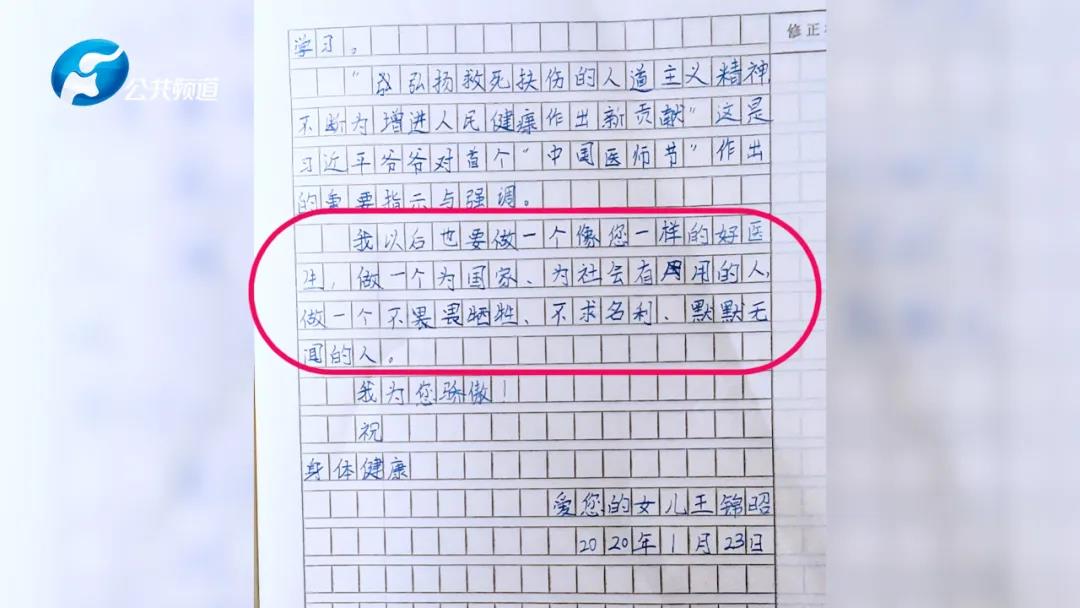 公共频道
修正
学习。
“弘扬救死扶伤的人道主义精神
不断为增进人民健康作出新贡献”这是
习近平爷爷对首个“中国医师节”作出
的重要指示与强调。
我以后也要做一个像您一样的好医
生，做一个为国家、为社会有用的人，
做一个不畏牺牲、不求名利、默默无
闻的人。
我为您骄傲！
祝
身体健康
爱您的女儿王锦昭
2020年1月23日